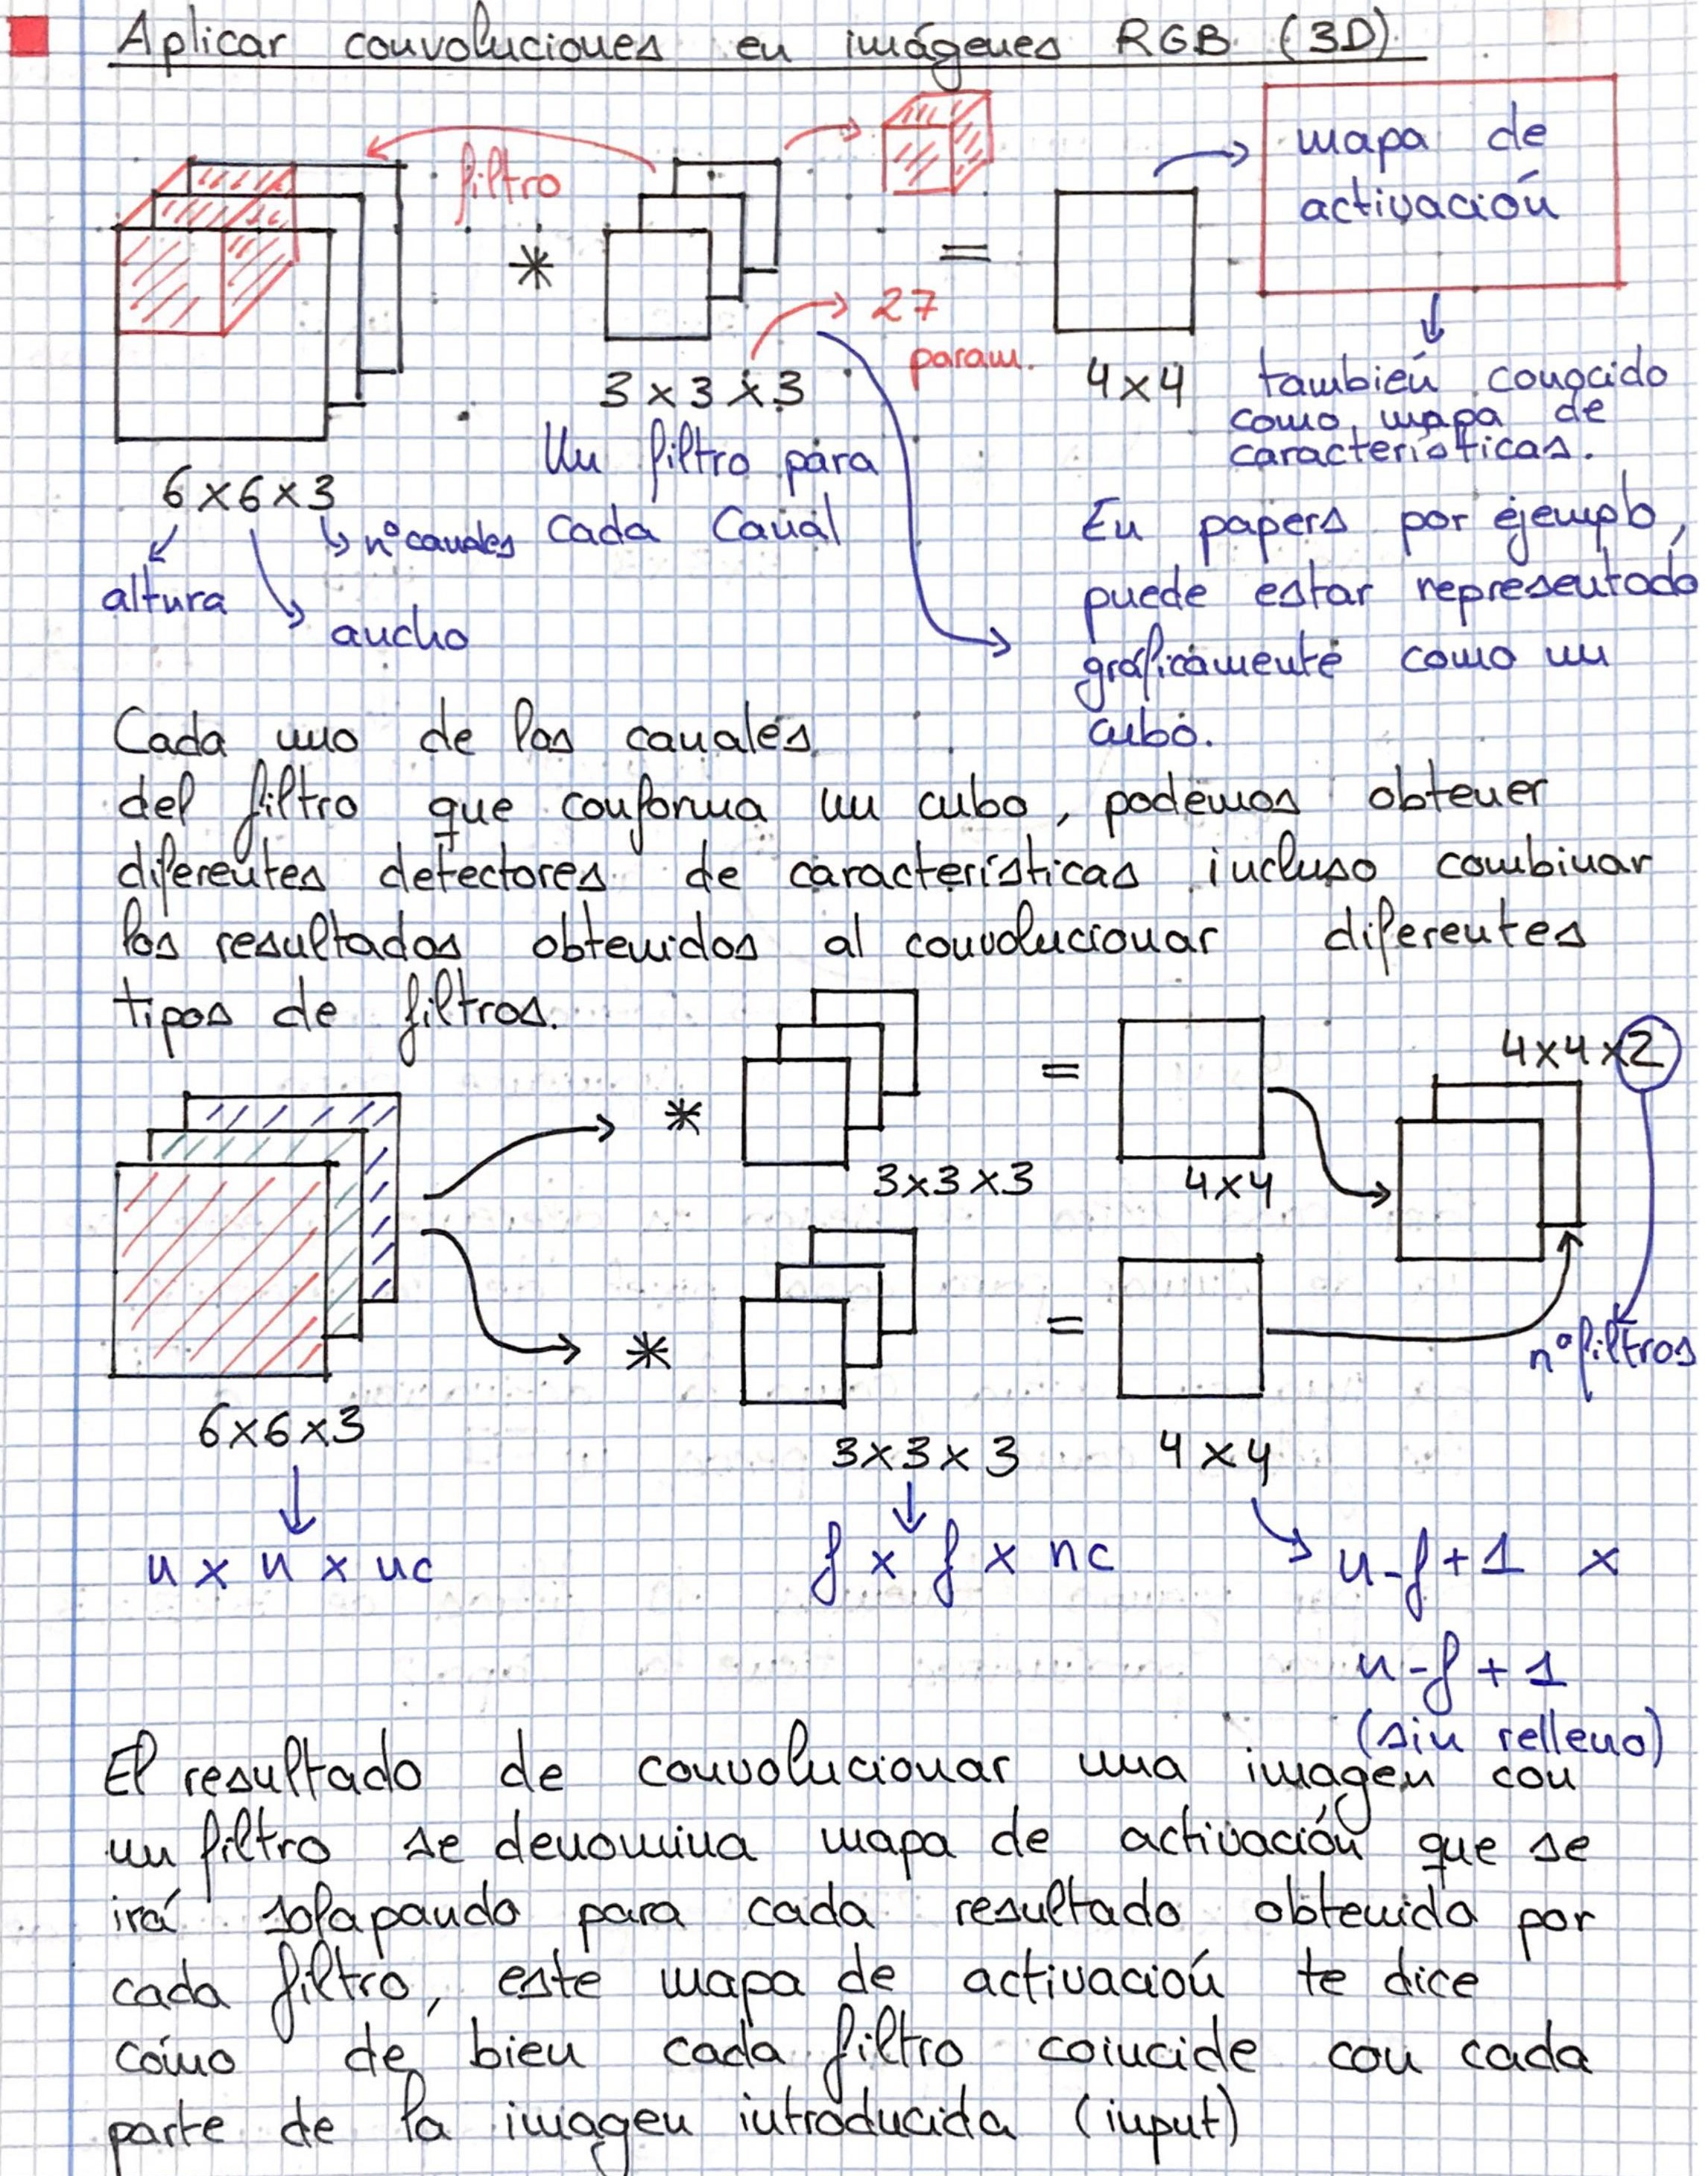 Aplicar convoluciones en imágenes RGB (3D)
filtro
mapa de
activación
*
=
27
param.
3 x 3 x 3
4 x 4
también conocido
como mapa de
características.
Un filtro para
cada canal
6 x 6 x 3
nº canales
altura
ancho
En papers por ejemplo,
puede estar representado
gráficamente como un
cubo.
Cada uno de los canales
del filtro que conforma un cubo, podemos obtener
diferentes detectores de características incluso combinar
los resultados obtenidos al convolucionar diferentes
tipos de filtros.
*
=
4x4x2
3x3x3
4x4
*
=
nº filtros
6x6x3
3x3x3
4x4
n x n x nc
f x f x nc
n-f+1 x
n-f+1
(sin relleno)
El resultado de convolucionar una imagen con
un filtro se denomina mapa de activación que se
irá solapando para cada resultado obtenido por
cada filtro, este mapa de activación te dice
cómo de bien cada filtro coincide con cada
parte de la imagen introducida (input)